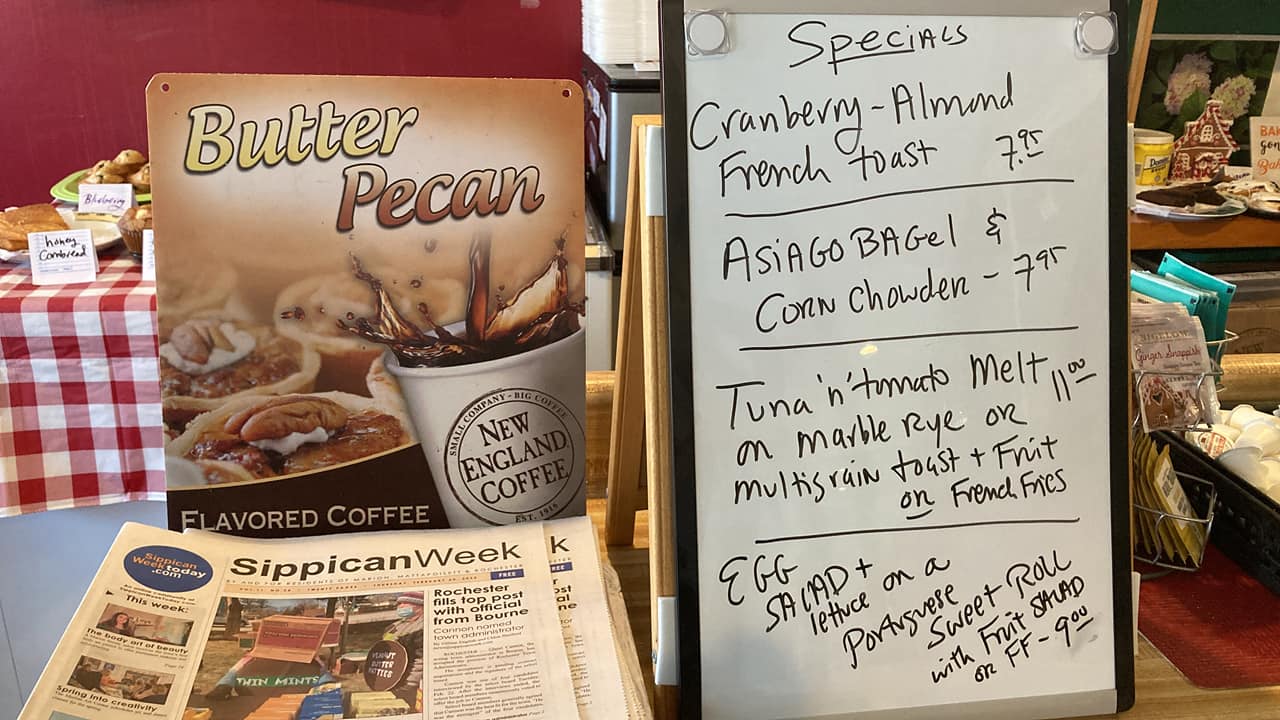 Butter
Pecan
SMALL COMPANY - BIG COFFEE
NEW
ENGLAND
COFFEE
EST. 1916
FLAVORED COFFEE
Blueberry
honey
Cornbread
Sippican
Week today
.com
SippicanWeek
FREE
This week:
The body art of beauty
Spring into creativity
Rochester
fills top post
with official
from Bourne
Cannon named
town administrator
THIN MINTS
PEANUT
BUTTER
PATTIES
Specials
Cranberry-Almond
French toast 7.95
AsiAGO BAGel &
CORN Chowder - 7.95
Tuna 'n' tomato Melt 11.00
on marble Rye or
multigrain toast + Fruit
or French Fries
EGG
SALAD +
lettuce on a
Portuguese
Sweet Roll
with Fruit SALAD
or FF - 9.00
Ginger Snappish